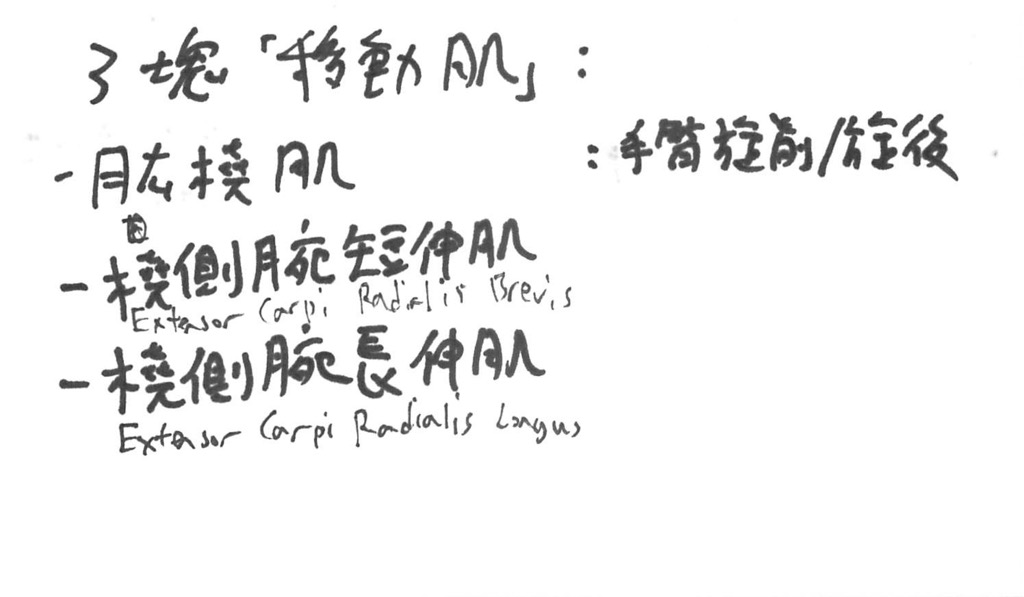 3塊「移動肌」：
-肱橈肌 ：手臂旋前/旋後
-橈側腕短伸肌
Extensor Carpi Radialis Brevis
-橈側腕長伸肌
Extensor Carpi Radialis Longus